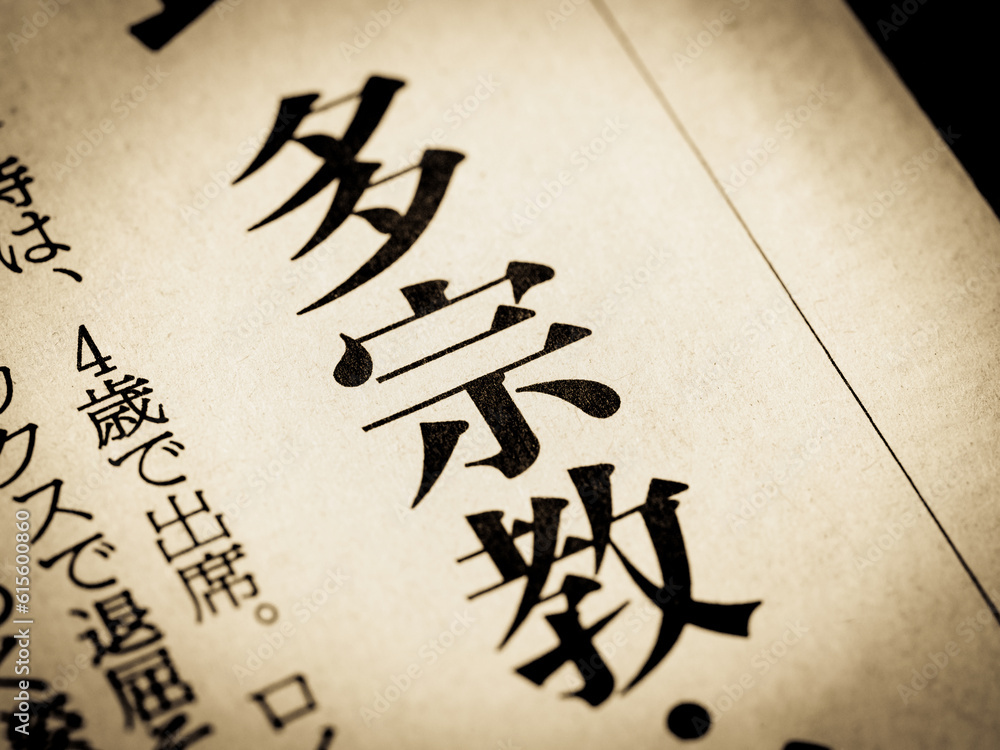 多宗教・
時は、
4歳で出席。ロ
クスで退屈
Adobe Stock | #615600860